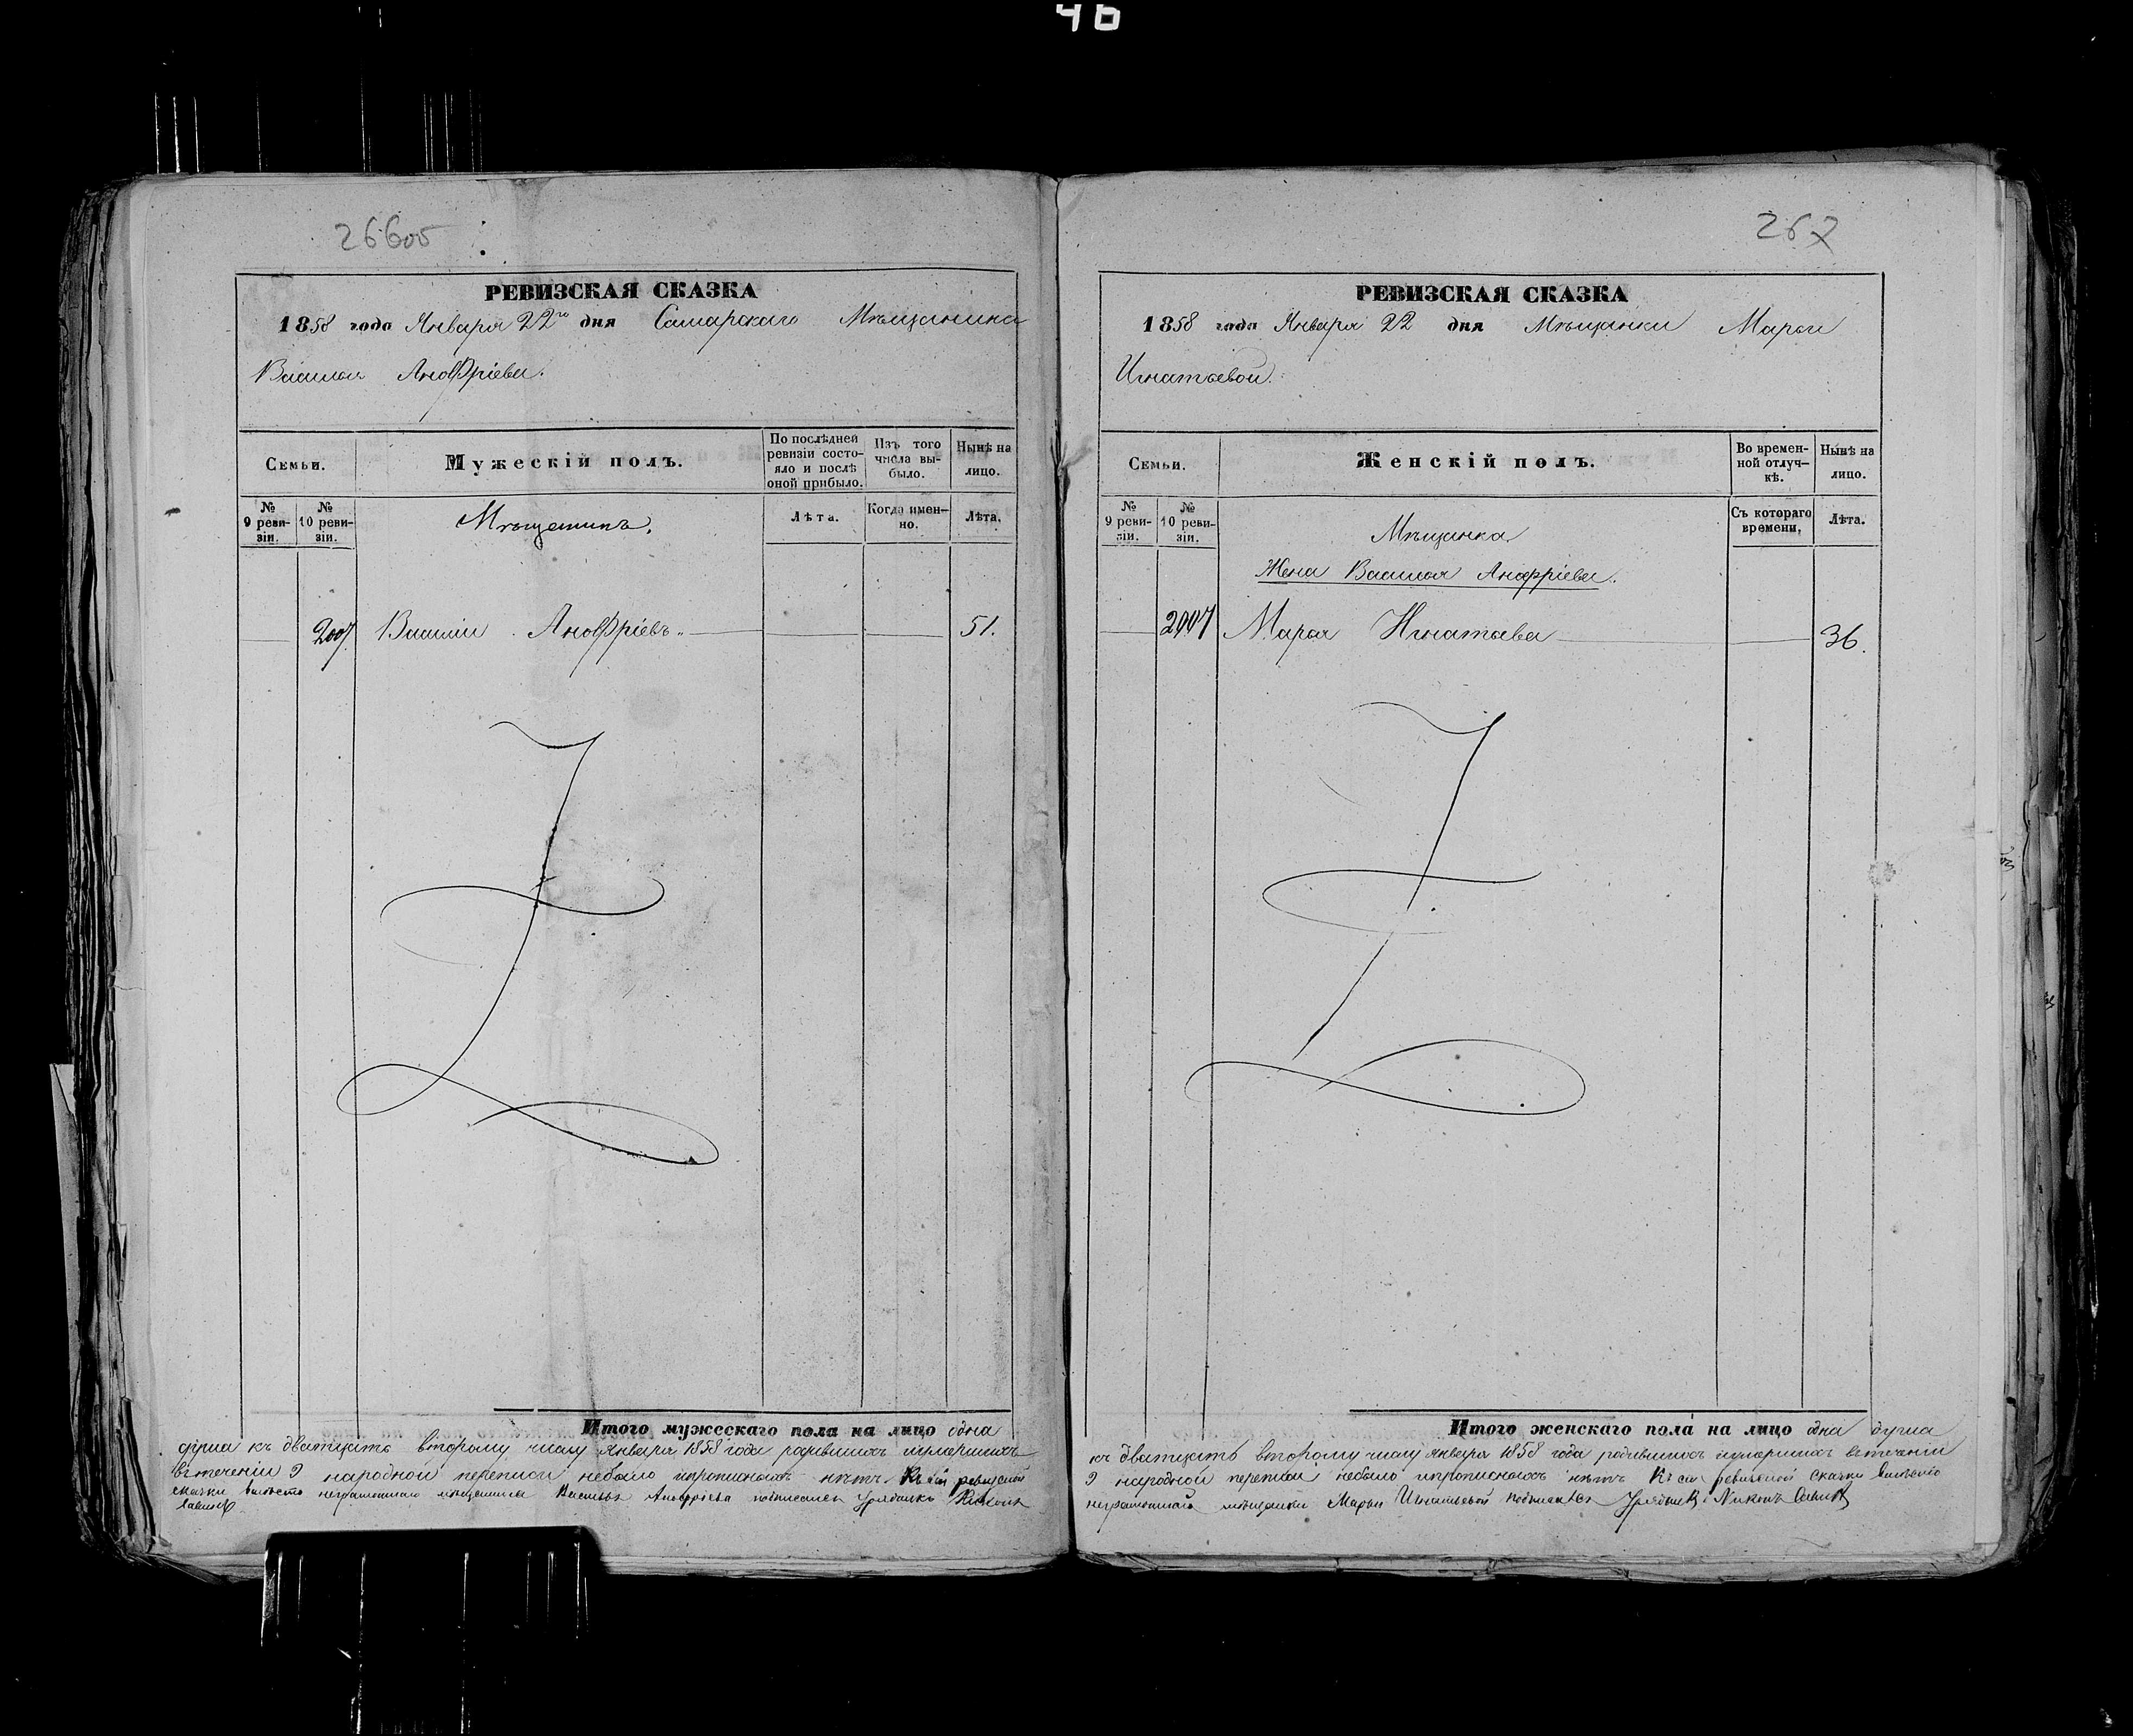 46
266об
РЕВИЗСКАЯ СКАЗКА
1858 года Января 22го дня Самарскаго Мѣщанина
Василья Анофріева.
Семьи.
Мужескій полъ.
По послѣдней ревизіи состояло и послѣ оной прибыло.
Изъ того числа выбыло.
Нынѣ на лицо.
№ 9 ревизіи.
№ 10 ревизіи.
Мѣщанинъ.
Лѣта.
Когда именно.
Лѣта.
2007. Василій Анофріевъ. 51.
Итого мужескаго пола на лицо одна
душа къ дватцать второму числу Января 1858 года родившихъ умершихъ
втеченіи 9 народной переписи небыло прописныхъ нѣтъ Къ сей ревизской
сказки вмѣсто неграмотнаго мѣщанина Василья Анофріева подписалъ Урядникъ Никонъ
267
РЕВИЗСКАЯ СКАЗКА
1858 года Января 22 дня Мѣщанки Марьи
Игнатьевой.
Семьи.
Женскій полъ.
Во временной отлучкѣ.
Нынѣ на лицо.
№ 9 ревизіи.
№ 10 ревизіи.
Мѣщанка
Съ котораго времени.
Лѣта.
Жена Василья Анофріева.
2007 Марья Игнатьева 36.
Итого женскаго пола на лицо одна душа
къ дватцать второму числу Января 1858 года родившихъ умершихъ втеченіи
9 народной переписи небыло прописныхъ нѣтъ Къ сей ревизской сказки вмѣсто
неграмотной мѣщанки Марьи Игнатьевой подписалъ Урядникъ Никонъ